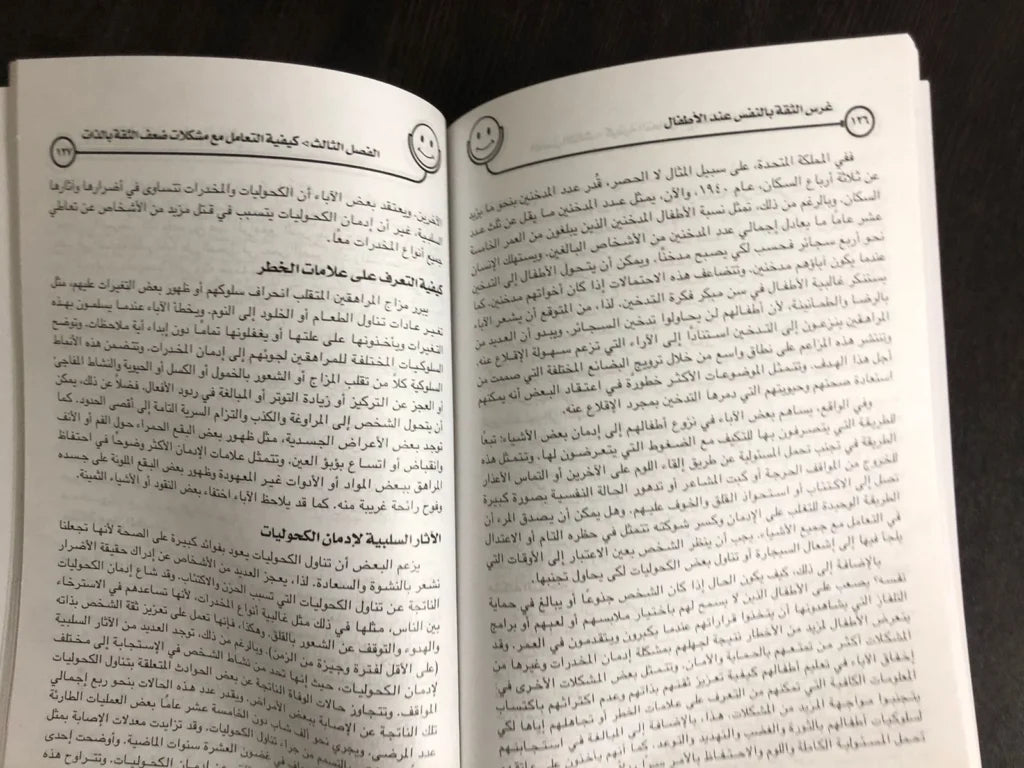 غرس الثقة بالنفس عند الأطفال
١٢٦
ففي المملكة المتحدة، على سبيل المثال لا الحصر، قُدر عدد المدخنين بنحو ما يزيد
عن ثلاثة أرباع السكان، عام ١٩٤٠، والآن، يمثل عدد المدخنين ما يقل عن ثلث عدد
السكان. وبالرغم من ذلك، تمثل نسبة الأطفال المدخنين الذين يبلغون من العمر الخامسة
عشر عامًا ما يعادل إجمالي عدد المدخنين من الأشخاص البالغين. ويستهلك الإنسان
نحو أربع سجائر فحسب لكي يصبح مدخنًا. ويمكن أن يتحول الأطفال إلى التدخين
عندما يكون آباؤهم مدخنين. وتتضاعف هذه الاحتمالات إذا كان أخواتهم مدخنين. كما
يستنكر غالبية الأطفال في سن مبكر فكرة التدخين. لذا، من المتوقع أن يشعر الآباء
بالرضا والطمأنينة، لأن أطفالهم لن يحاولوا تدخين السجائر. ويبدو أن العديد من
المراهقين ينزعون إلى التدخين استنادًا إلى الآراء التي تزعم سهولة الإقلاع عنه.
وتنتشر هذه المزاعم على نطاق واسع من خلال ترويج البضائع المختلفة التي صممت من
أجل هذا الهدف. وتتمثل الموضوعات الأكثر خطورة في اعتقاد البعض أنه يمكنهم
استعادة صحتهم وحيويتهم التي دمرها التدخين بمجرد الإقلاع عنه.
وفي الواقع، يساهم بعض الآباء في نزوع أطفالهم إلى إدمان بعض الأشياء؛ تبعًا
للطريقة التي يتصرفون بها للتكيف مع الضغوط التي يتعرضون لها. وتتمثل هذه
الطريقة في تجنب تحمل المسئولية عن طريق إلقاء اللوم على الآخرين أو التماس الأعذار
للخروج من المواقف الحرجة أو كبت المشاعر أو تدهور الحالة النفسية بصورة كبيرة
تصل إلى الاكتئاب أو استحواذ القلق والخوف عليهم. وهل يمكن أن يصدق المرء أن
الطريقة الوحيدة للتغلب على الإدمان وكسر شوكته تتمثل في حظره التام أو الاعتدال
في التعامل مع جميع الأشياء. يجب أن ينظر الشخص بعين الاعتبار إلى الأوقات التي
يلجأ فيها إلى إشعال السيجارة أو تناول بعض الكحوليات لكي يحاول تجنبها.
بالإضافة إلى ذلك، كيف يكون الحال إذا كان الشخص جذوعًا أو يبالغ في حماية
نفسه؟ يصعب على الأطفال الذين لا يسمح لهم باختيار ملابسهم أو لعبهم أو برامج
التلفاز التي يشاهدونها أن يتخذوا قراراتهم عندما يكبرون ويتقدمون في العمر. وقد
يتعرض الأطفال لمزيد من الأخطار نتيجة لجهلهم بمشكلة إدمان المخدرات وغيرها من
المشكلات أكثر من تمتعهم بالحماية والأمان. وتتمثل بعض المشكلات الأخرى في
إخفاق الآباء في تعليم أطفالهم كيفية تعزيز ثقتهم بذاتهم وعدم اكتراثهم باكتساب
المعلومات الكافية التي تمكنهم من التعرف على علامات الخطر أو تجاهلهم إياها لكي
يتجنبوا مواجهة المزيد من المشكلات. هذا، بالإضافة إلى المبالغة في استجابتهم
لسلوكيات أطفالهم بالثورة والغضب والتهديد والتوعد. كما أنهم
تحمل المسئولية الكاملة واللوم والاحتفاظ بالأمر
الفصل الثالث> كيفية التعامل مع مشكلات ضعف الثقة بالذات
١٢٧
الآخرين. ويعتقد بعض الآباء أن الكحوليات والمخدرات تتساوى في أضرارها وآثارها
السلبية. غير أن إدمان الكحوليات يتسبب في قتل مزيد من الأشخاص عن تعاطي
جميع أنواع المخدرات معًا.
كيفية التعرف على علامات الخطر
يبرر مزاج المراهقين المتقلب انحراف سلوكهم أو ظهور بعض التغيرات عليهم، مثل
تغير عادات تناول الطعام أو الخلود إلى النوم. ويخطأ الآباء عندما يسلمون بهذه
التغيرات ويأخذونها على علتها أو يغفلونها تمامًا دون إبداء أية ملاحظات. وتوضح
السلوكيات المختلفة للمراهقين لجوئهم إلى إدمان المخدرات. وتتضمن هذه الأنماط
السلوكية كلا من تقلب المزاج أو الشعور بالخمول أو الكسل أو الحيوية والنشاط المفاجئ
أو العجز عن التركيز أو زيادة التوتر أو المبالغة في ردود الأفعال. فضلًا عن ذلك، يمكن
أن يتحول الشخص إلى المراوغة والكذب والتزام السرية التامة إلى أقصى الحدود. كما
توجد بعض الأعراض الجسدية، مثل ظهور بعض البقع الحمراء حول الفم أو الأنف
وانقباض أو اتساع بؤبؤ العين. وتتمثل علامات الإدمان الأكثر وضوحًا في احتفاظ
المراهق ببعض المواد أو الأدوات غير المعهودة وظهور بعض البقع الملونة على جسده
وفوح رائحة غريبة منه. كما قد يلاحظ الآباء اختفاء بعض النقود أو الأشياء الثمينة.
الآثار السلبية لإدمان الكحوليات
يزعم البعض أن تناول الكحوليات يعود بفوائد كبيرة على الصحة لأنها تجعلنا
نشعر بالنشوة والسعادة. لذا، يعجز العديد من الأشخاص عن إدراك حقيقة الأضرار
الناتجة عن تناول الكحوليات التي تسبب الحزن والاكتئاب. وقد شاع إدمان الكحوليات
بين الناس، مثلها في ذلك مثل غالبية أنواع المخدرات، لأنها تساعدهم في الاسترخاء
والهدوء والتوقف عن الشعور بالقلق. وهكذا، فإنها تعمل على تعزيز ثقة الشخص بذاته
(على الأقل لفترة وجيزة من الزمن). وبالرغم من ذلك، توجد العديد من الآثار السلبية
لإدمان الكحوليات، حيث إنها تحد من نشاط الشخص في الاستجابة إلى مختلف
المواقف. وتتجاوز حالات الوفاة الناتجة عن بعض الحوادث المتعلقة بتناول الكحوليات
تلك الناتجة عن الإصابة ببعض الأمراض. ويقدر عدد هذه الحالات بنحو ربع إجمالي
عدد المرضى. ويجري نحو ألف شاب دون الخامسة عشر عامًا بعض العمليات الطارئة
من جراء تناول الكحوليات. وقد تزايدت معدلات الإصابة بمثل
في غضون العشرة سنوات الماضية. وأوضحت إحدى
عن إدمان الكحوليات. وتتراوح هذه